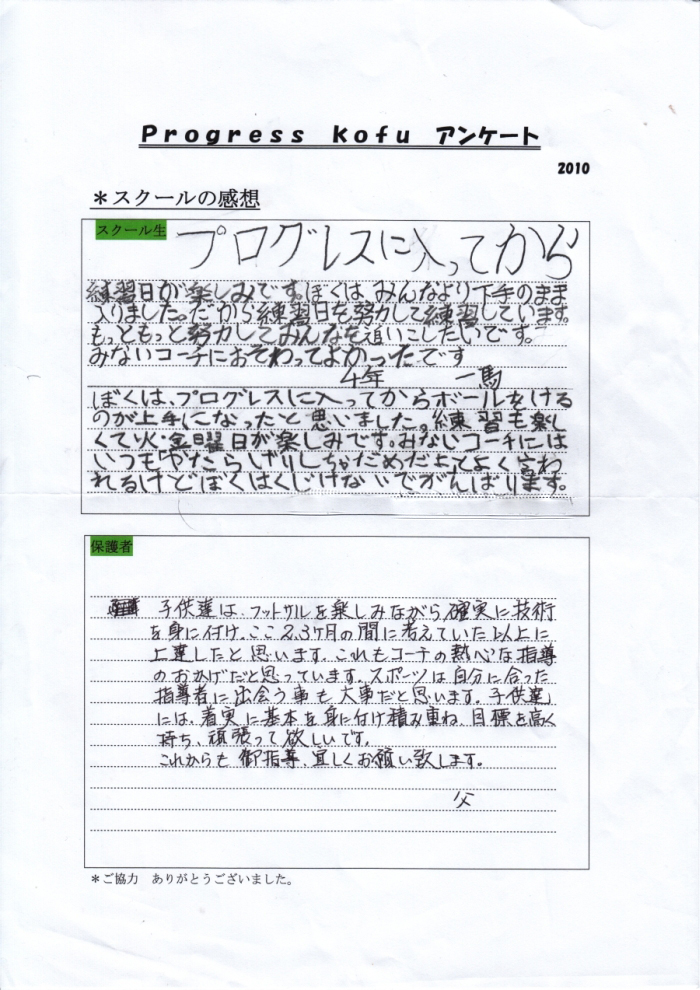 Progress kofu アンケート
2010
＊スクールの感想
スクール生
プログレスに入ってから
練習日が楽しみです。ぼくは、みんなより下手のまま
入りました。だから練習日を努力して練習しています。
もっともっと努力してみんなを追いこしたいです。
みないコーチにおそわってよかったです
4年 一馬
ぼくは、プログレスに入ってからボールをける
のが上手になったと思いました。練習も楽し
くて火・金曜日が楽しみです。みないコーチには
いつも「やたらしりしちゃだめだよ」ってよく言わ
れるけどぼくはくじけないでがんばります。
保護者
子供達は、フットサルを楽しみながら、確実に技術
を身に付け、ここ2、3ヶ月の間に考えていた以上に
上達したと思います。これもコーチの熱心な指導
のおかげだと思っています。スポーツは自分に合った
指導者に出会う事も大事だと思います。子供達
には、着実に基本を身に付け積み重ね、目標を高く
持ち、頑張って欲しいです。
これからも御指導、宜しくお願い致します。
父
＊ご協力 ありがとうございました。